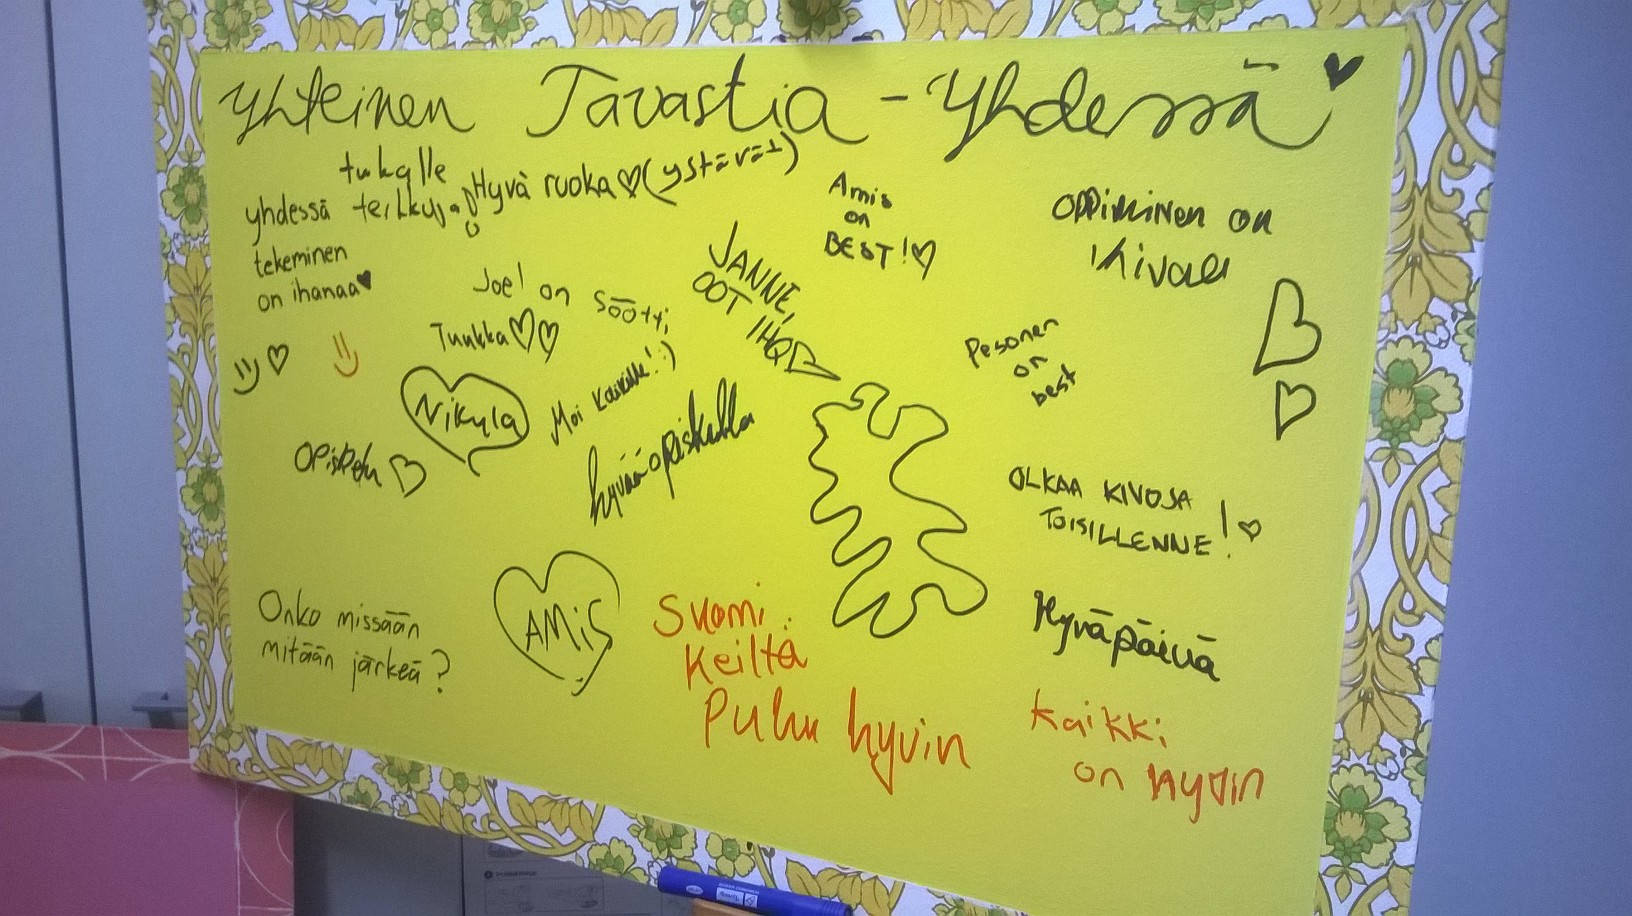 Yhteinen Tavastia - Yhdessä
tukalle
terkkuja
Hyvä ruoka (ystävät)
yhdessä
tekeminen
on ihanaa
Amis
on
BEST!
OPPiMiNEN on
kivaa
Joel on söötti
Tuukka
JANNE,
OOT IHQ
Pesonen
on
best
Nikula
Moi kaikille! :)
hyvää opiskelua
Opiskelu
OLKAA KIVOJA
TOISILLENNE!
Onko missään
mitään järkeä?
AMiS
Suomi
Keiltä
Puhu hyvin
Hyvä päivä
Kaikki
on hyvin